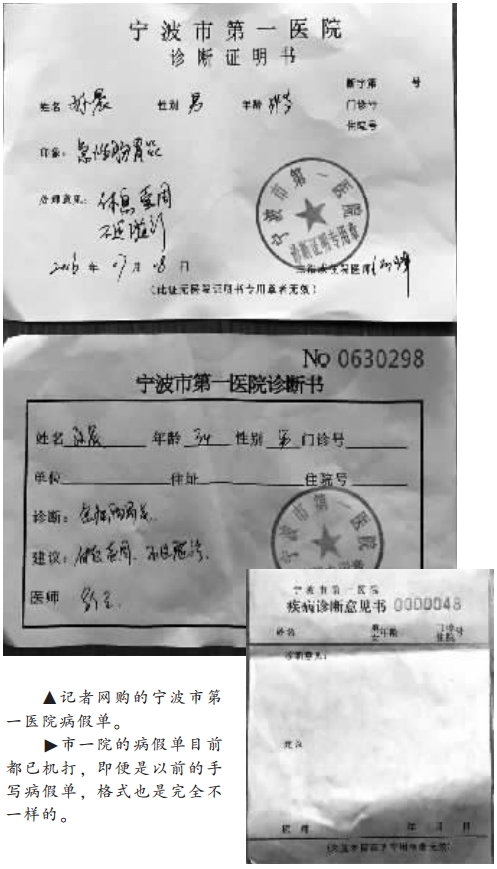 宁波市第一医院
诊断证明书
断字第 号
姓名 性别 男 年龄
门诊号
住院号
印象：急性肠胃炎
处理意见：休息壹周
不适随诊
2016 年 07 月 08 日
（此证无医院证明书专用章者无效）
宁波市第一医院
诊断证明专用章
No 0630298
宁波市第一医院诊断书
姓名 年龄 34 性别 男 门诊号
单位 住址 住院号
诊断：急性肠胃炎
建议：休息壹周、不适随诊.
医师
宁波市第一医院
宁波市第一医院
疾病诊断意见书 0000048
姓名 男女 年龄 门诊住院号
诊断意见：
建议
医师 年 月 日
▲记者网购的宁波市第
一医院病假单。
▶市一院的病假单目前
都已机打，即便是以前的手
写病假单，格式也是完全不
一样的。